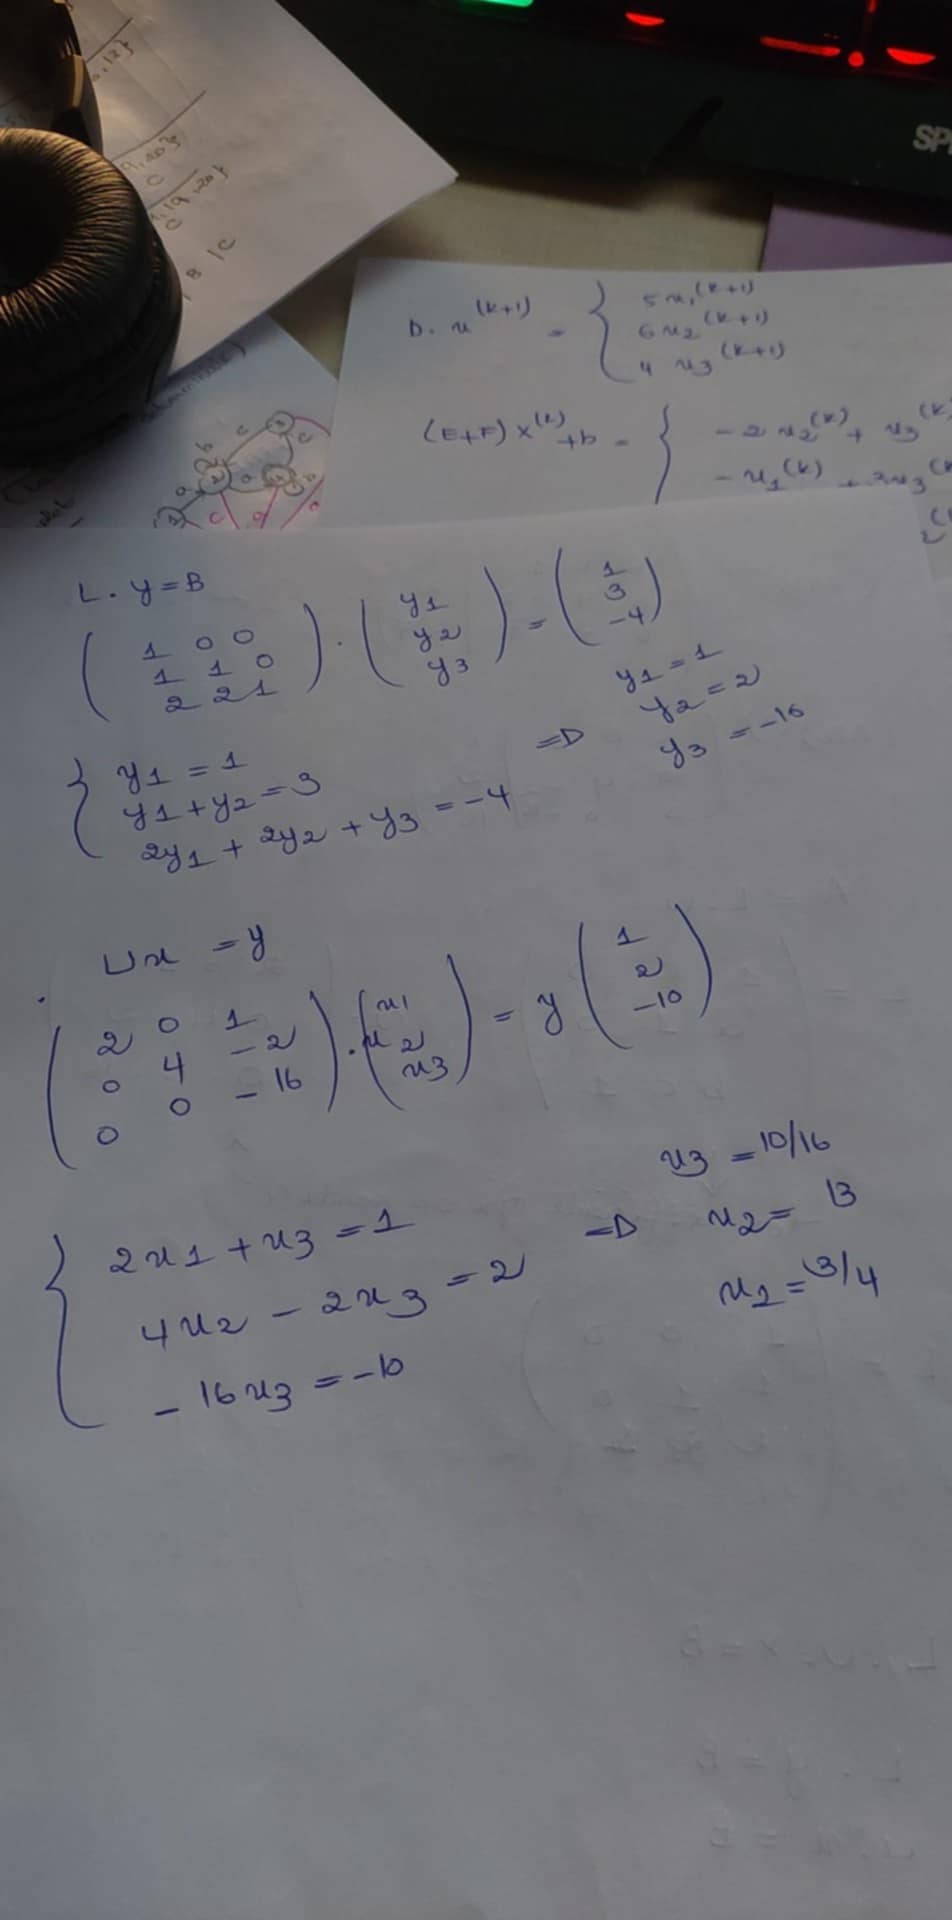 SP
B IC
D. x^(k+1) = { 5x₁^(k+1)
6x₂^(k+1)
4 x₃^(k+1)
(E+F) x^(k) + b = { -2x₂^(k) + x₃^(k)
-x₁^(k) + 2x₃^(k
L. y = B
( 1 0 0
1 1 0
2 2 1 ) . ( y1
y2
y3 ) = ( 1
3
-4 )
{ y1 = 1
y1 + y2 = 3
2y1 + 2y2 + y3 = -4
=D y1 = 1
y2 = 2
y3 = -16
Ux = y
( 2 0 1
0 4 -2
0 0 -16 ) . ( x1
x2
x3 ) = y ( 1
2
-10 )
{ 2x1 + x3 = 1
4x2 - 2x3 = 2
-16x3 = -10
=D x3 = 10/16
x2 = 13
x1 = 3/4